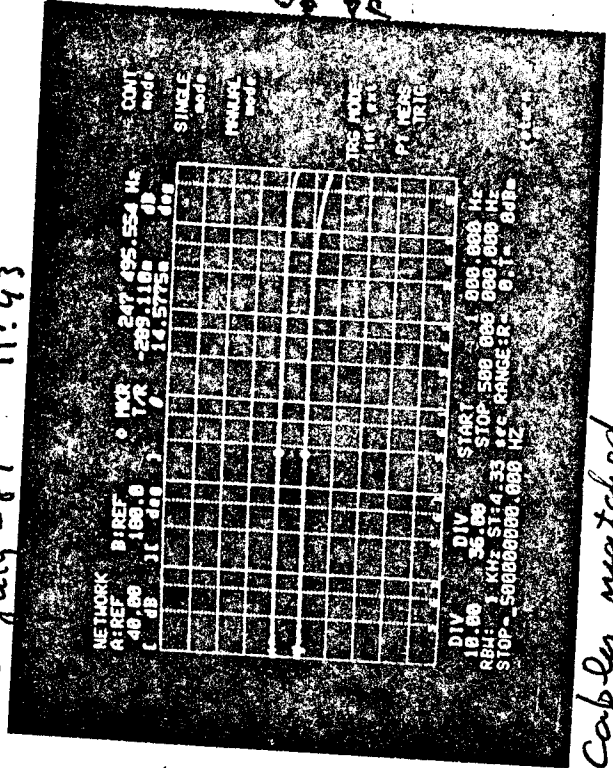 July-89 11:43
NETWORK
A:REF B:REF o MKR 247 495.554 Hz
40.00 180.0 T/R -209.110m dB
[ dB ][ deg ] θ 14.5775m deg
CONT
mode
SINGLE
mode
MANUAL
mode
TRG MODE
int ext
P1 MEAS
TRIG
return
DIV DIV START 1 000.000 Hz
10.00 36.00 STOP 500 000 000.000 Hz
RBW: 1 KHz ST:4.33 sec RANGE:R= 0,T= 0dBm
STOP= 500000000.000 HZ
Cables matched